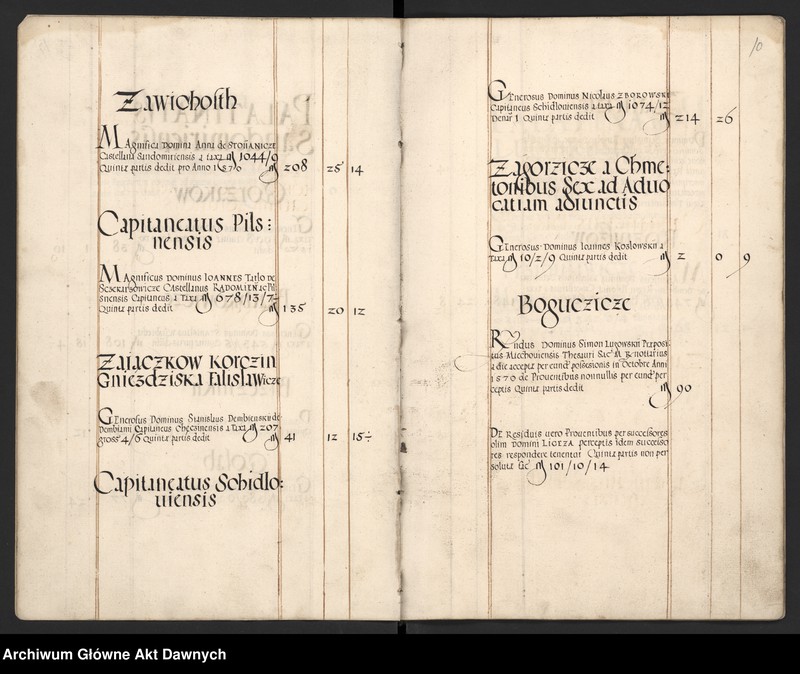 Zawichosth
Magnifica Domina Anna de Stoffanicze
Castellana Sandomiriensis a taxa 1044/9
Quinta partis dedit pro Anno 1570 208 25 14
Capitaneatus Pils:
nensis
Magnificus Dominus Ioannes Tarlo de
Sczekarzowicze Castellanus Radomien ac Pil
snensis Capitaneus a Taxa 678/13/7
Quinta partis dedit 135 20 12
Zaiaczkow Korczin
Gniezdziska Falislawicze
Generosus Dominus Stanislaus Dembienski de
Dembiani Capitaneus Checinensis a taxa 207
gross 4/6 Quinta partis dedit 41 12 15÷
Capitaneatus Sohidlo:
uiensis
10
Generosus Dominus Nicolaus Zborowski
Capitaneus Schidlouiensis a taxa 1074/12
Denar 1 Quinta partis dedit 214 26
Zagorzicze a Chme:
tonibus Sex ad Aduo
catiam adiunctis
Generosus Dominus Ioannes Koslowski a
taxa 10/2/9 Quinta partis dedit 2 0 9
Boguczicze
Rndus Dominus Simon Lugowskii Præposi
tus Miechouiensis Thesauri notarius
a die acceptæ per eund possesionis in Octobre Anni
1570 de Prouentibus nonnullis per eund per
ceptis Quinta partis dedit 90
De Residuis uero Prouentibus per successores
olim Domini Ligeza perceptis idem successo
res respondere tenentur Quinta partis non per
soluta 101/10/14
Archiwum Główne Akt Dawnych